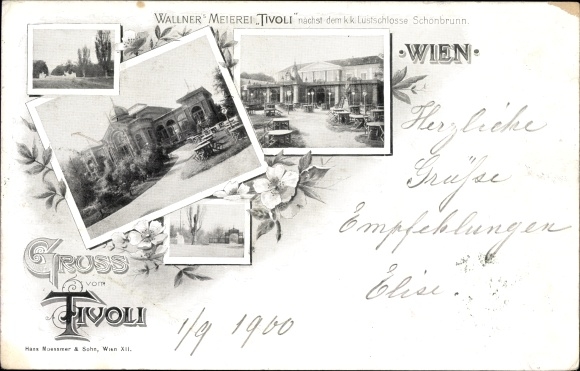 WALLNER'S MEIEREI „TIVOLI" nächst dem k.k. Lustschlosse Schönbrunn.
·WIEN·
Herzliche
Grüße
Empfehlungen
Elise.
GRUSS
VOM
TIVOLI
1/9 1900
Hans Nuessmer & Sohn, Wien XII.